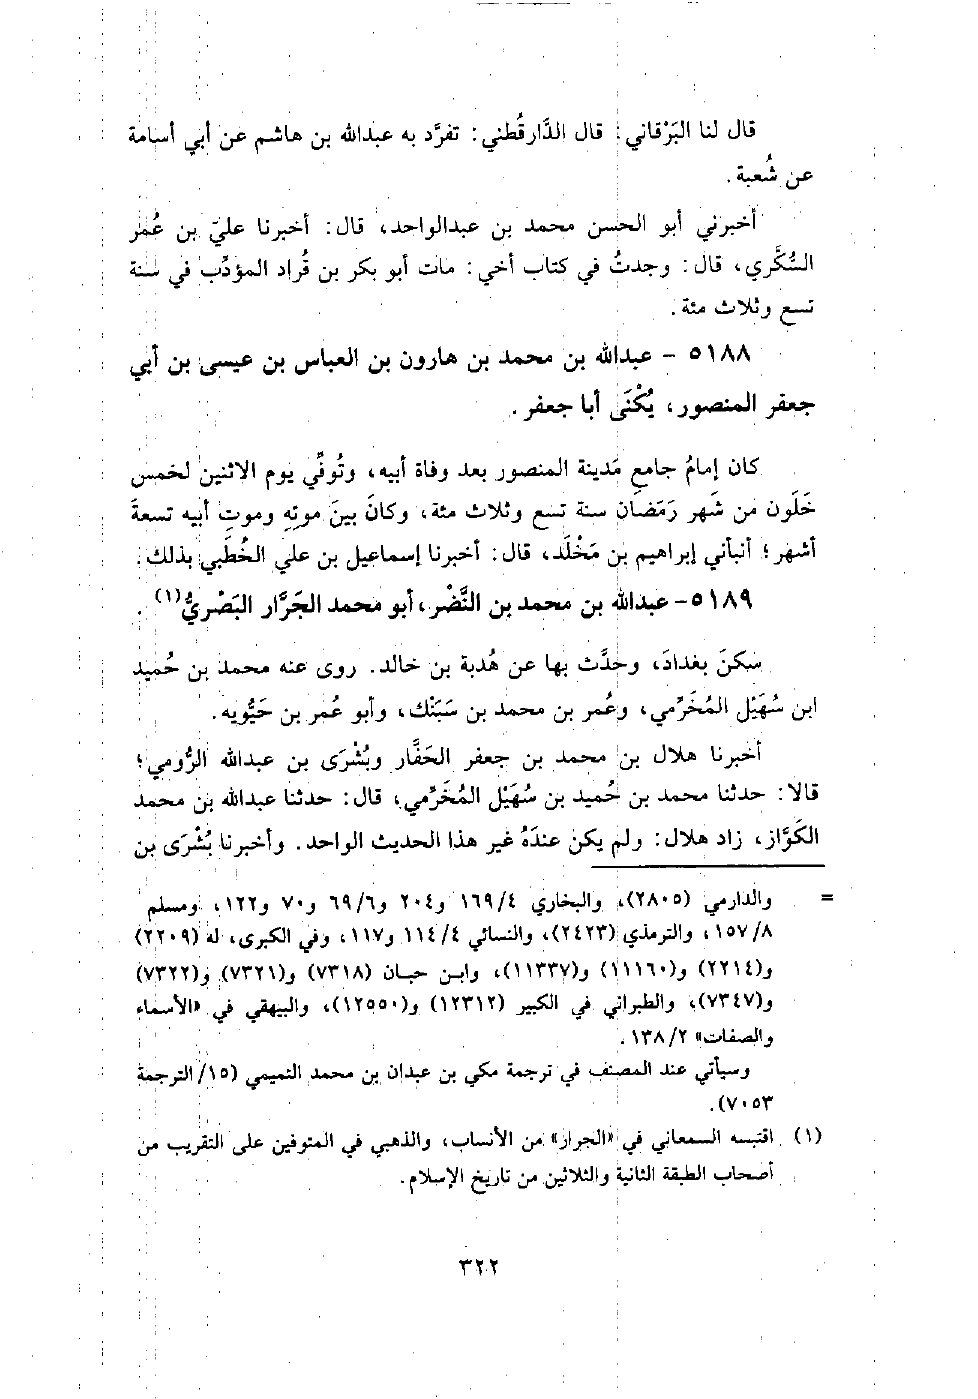 قال لنا البَرْقاني: قال الدَّارقُطني: تفرَّد به عبدالله بن هاشم عن أبي أسامة
عن شُعبة.
أخبرني أبو الحسن محمد بن عبدالواحد، قال: أخبرنا عليّ بن عُمر
السُّكَّري، قال: وجدتُ في كتاب أخي: مات أبو بكر بن قُراد المؤدِّب في سنة
تسع وثلاث مئة.
٥١٨٨ - عبدالله بن محمد بن هارون بن العباس بن عيسى بن أبي
جعفر المنصور، يُكْنَى أبا جعفر.
كان إمامُ جامع مَدينة المنصور بعد وفاة أبيه، وتُوفِّي يوم الاثنين لخمسٍ
خَلَون من شَهر رَمَضان سنة تسع وثلاث مئة، وكانَ بينَ موتِهِ وموتِ أبيه تسعةَ
أشهر؛ أنبأني إبراهيم بن مَخْلَد، قال: أخبرنا إسماعيل بن علي الخُطَبي بذلك.
٥١٨٩- عبدالله بن محمد بن النَّضْر، أبو محمد الجَرَّار البَصْريُّ(١).
سَكنَ بغدادَ، وحدَّث بها عن هُدبة بن خالد. روى عنه محمد بن حُميد
ابن سُهَيْل المُخَرِّمي، وعُمر بن محمد بن سَبَنْك، وأبو عُمر بن حَيُّويه.
أخبرنا هلال بن محمد بن جعفر الحَفَّار وبُشْرَى بن عبدالله الرُّومي؛
قالا: حدثنا محمد بن حُميد بن سُهَيْل المُخَرِّمي، قال: حدثنا عبدالله بن محمد
الكَوَّاز، زاد هلال: ولم يكن عندَهُ غير هذا الحديث الواحد. وأخبرنا بُشْرَى بن
= والدارمي (٢٨٠٥)، والبخاري ٤/ ١٦٩ و٢٠٤ و٦/ ٦٩ و٧٠ و١٢٢، ومسلم
٨/ ١٥٧، والترمذي (٢٤٢٣)، والنسائي ٤/ ١١٤ و١١٧، وفي الكبرى، له (٢٢٠٩)
و(٢٢١٤) و(١١١٦٠) و(١١٣٣٧)، وابن حبان (٧٣١٨) و(٧٣٢١) و(٧٣٢٢)
و(٧٣٤٧)، والطبراني في الكبير (١٢٣١٢) و(١٢٥٥٠)، والبيهقي في «الأسماء
والصفات» ٢/ ١٣٨.
وسيأتي عند المصنف في ترجمة مكي بن عبدان بن محمد التميمي (١٥/ الترجمة
٧٠٥٣).
(١) اقتبسه السمعاني في «الجرار» من الأنساب، والذهبي في المتوفين على التقريب من
أصحاب الطبقة الثانية والثلاثين من تاريخ الإسلام.
٣٢٢